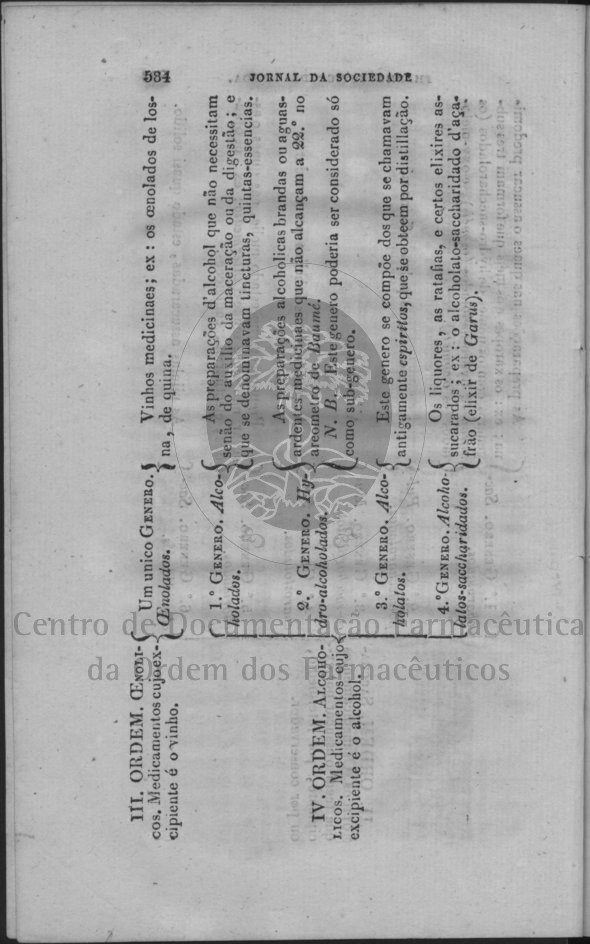 534
JORNAL DA SOCIEDADE
III. ORDEM. ŒNOLI-
COS. Medicamentos cujo ex-
cipiente é o vinho.
Um unico GENERO.
Œnolados.
Vinhos medicinaes; ex: os œnolados de los-
na, de quina.
IV. ORDEM. ALCOHO-
LICOS. Medicamentos cujo
excipiente é o alcohol.
1.° GENERO. Alco-
holados.
As preparações d'alcohol que não necessitam
senão do auxilio da maceração ou da digestão; e
que se denominavam tincturas, quintas-essencias.
2.° GENERO. Hy-
dro-alcoholados.
As preparações alcoholicas brandas ou aguas-
ardentes medicinaes que não alcançam a 22.° no
areometro de Baumé.
N. B. Este genero poderia ser considerado só
como sub-genero.
3.° GENERO. Alco-
holatos.
Este genero se compõe dos que se chamavam
antigamente espiritos, que se obteem por distillação.
4.° GENERO. Alcoho-
latos-saccharidados.
Os liquores, as ratafias, e certos elixires as-
sucarados; ex: o alcoholato-saccharidado d'aça-
frão (elixir de Garus).
Centro de Documentação Farmacêutica
da Ordem dos Farmacêuticos